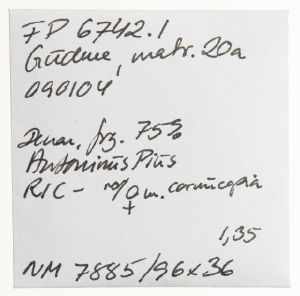 FP 6742.1
Gudme, matr. 20a
090104
Denar, frg. 75%
Antoninus Pius
RIC - m. cornucopia
1,35
NM 7885/96x36